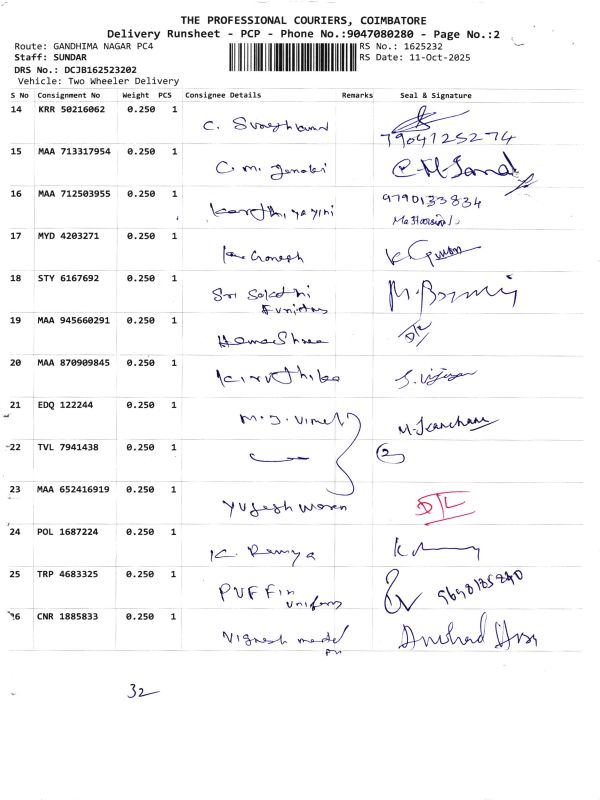 THE PROFESSIONAL COURIERS, COIMBATORE
Delivery Runsheet - PCP - Phone No.:9047080280 - Page No.:2
Route: GANDHIMA NAGAR PC4 RS No.: 1625232
Staff: SUNDAR RS Date: 11-Oct-2025
DRS No.: DCJB162523202
Vehicle: Two Wheeler Delivery
S No Consignment No Weight PCS Consignee Details Remarks Seal & Signature
14 KRR 50216062 0.250 1 C.
7904125274
15 MAA 713317954 0.250 1 C. M.
16 MAA 712503955 0.250 1 9790133834
17 MYD 4203271 0.250 1 Ganesh
18 STY 6167692 0.250 1 Sri Sakthi
19 MAA 945660291 0.250 1 HemaShree D/L
20 MAA 870909845 0.250 1 Kiruthika
21 EDQ 122244 0.250 1 M. J. Vimel
22 TVL 7941438 0.250 1 2
23 MAA 652416919 0.250 1 D/L
24 POL 1687224 0.250 1 K. Remya
25 TRP 4683325 0.250 1 PUFFin
uniforms
CNR 1885833 0.250 1 Vignesh
32